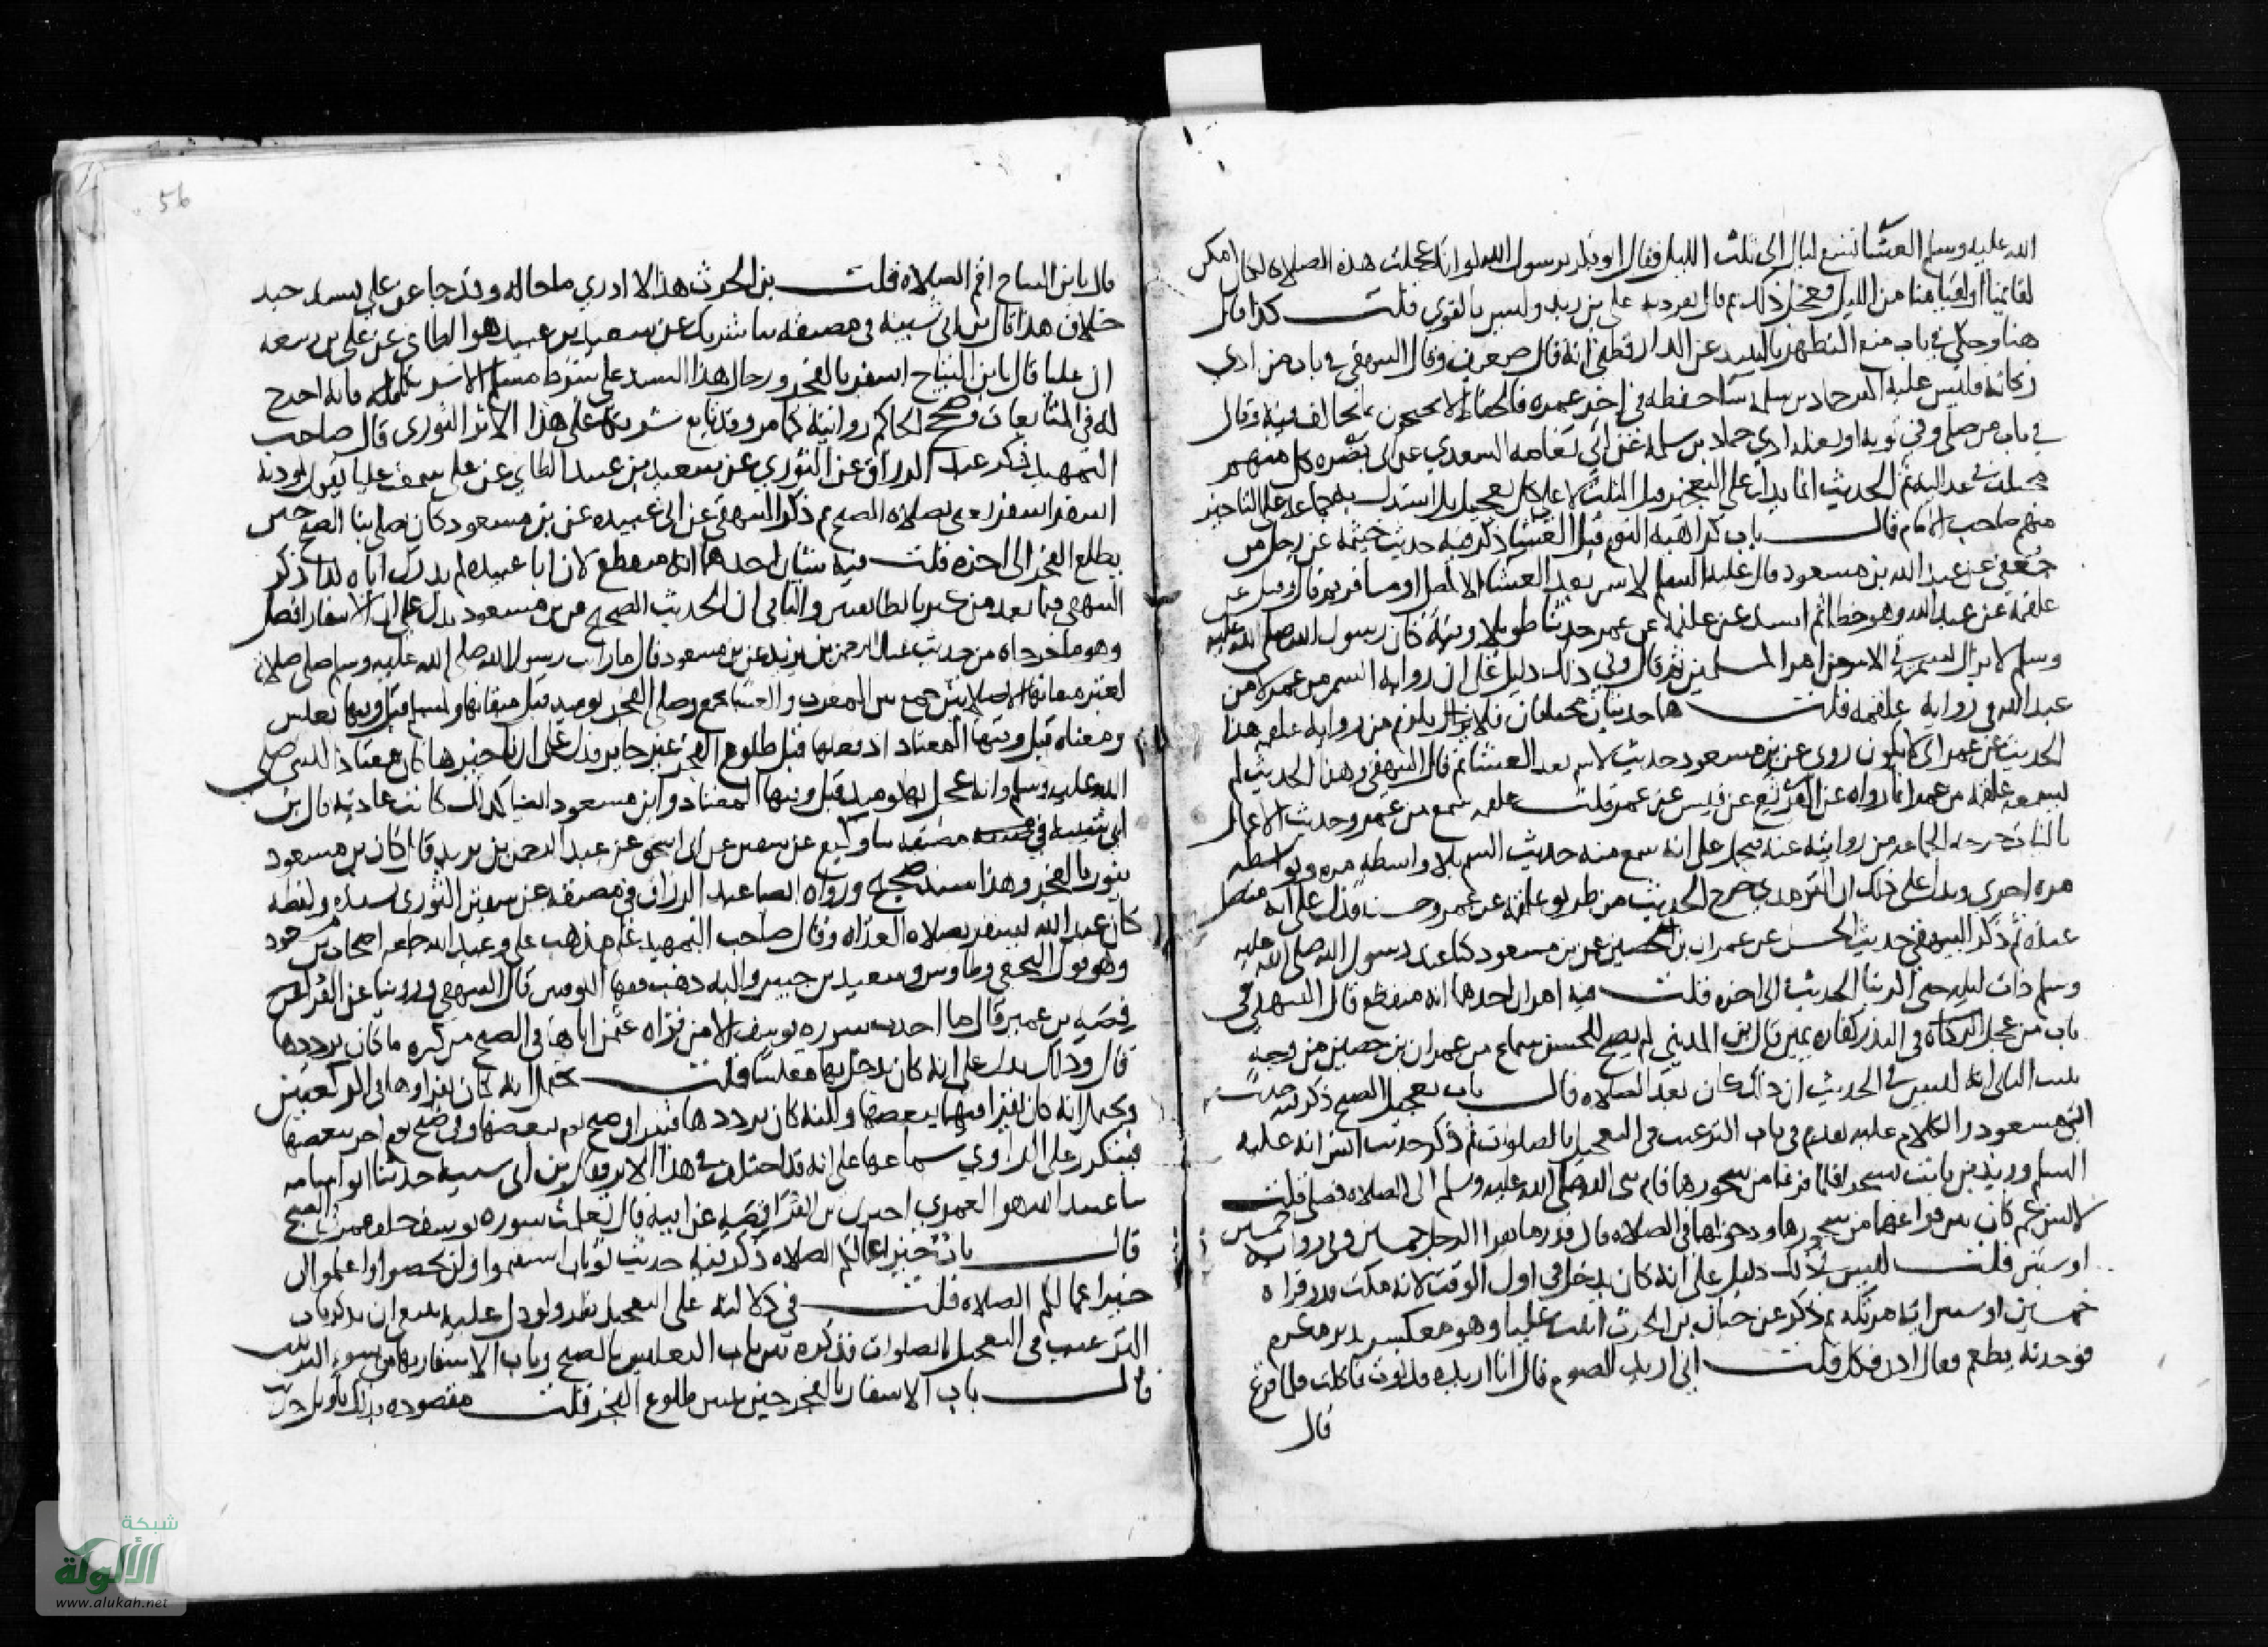 الله عليه وسلم العشا تسع ليال الى ثلث الليل فقال ابو بكر يرسول الله لو انك عجلت هذه الصلاة لكان امكن
لقائمنا او لقيامنا من الليل فعجل ذلك ثم قال تفرد به علي بن زيد وليس بالقوي قلت كذا قال
هنا وحكى في باب منع التطهر بالنبيذ عن الدارقطني انه قال ضعيف وقال البيهقي في باب من ادي
زكاته فليس عليه اكثر حماد بن سلمة سا حفظه في اخر عمره فالحفاظ لا يحتجون بما يخالف فيه وقال
في باب من صلى وفي ثوبه او نعله اذي حماد بن سلمة عن ابي نعامة السعدي عن ابي نضرة كل منهم
مختلف في عدالته ثم الحديث انما يدل على التعجيل قبل الثلث لا على كل تعجيل بل استدل به جماعة على التاخير
منهم صاحب الامام قال باب كراهية النوم قبل العشا ذكر فيه حديث خيثمة عن رجل من
جعفي عن عبد الله بن مسعود قال عليه السلم لا سمر بعد العشاء الا لمصل او مسافر ثم قال وقيل عن
علقمة عن عبد الله وهو خطا ثم اسند عن علقمة عن عمر حديثا طويلا وفيه كان رسول الله صلى الله عليه
وسلم لا يزال يسمر في الامر من امر المسلمين ثم قال وفي ذلك دليل على ان رواية السمر من عمر لا من
عبد الله في رواية علقمة قلت هما حديثان مختلفان فلا يلزم من رواية علقمة هذا
الحديث عن عمر ان لا يكون روى عن بن مسعود حديث لا سمر بعد العشا ثم قال البيهقي وهذا الحديث لم
يسمعه علقمة من عمر انما رواه عن القرثع عن قيس عن عمر قلت علقمة سمع من عمر وحديث الاعمال
بالنيات خرجه الجماعة من روايته عنه فيحمل على انه سمع منه حديث السمر بلا واسطة مرة وبواسطة
مرة اخرى ويدل على ذلك ان الترمذي خرج الحديث من طريق علقمة عن عمر وحسنه فدل على انه متصل
عنده ثم ذكر البيهقي حديث الحسن عن عمران بن الحصين عن بن مسعود كنا عند رسول الله صلى الله عليه
وسلم ذات ليلة حتى اكرينا الحديث الى اخره قلت فيه امران احدهما انه منقطع قال البيهقي في
باب من جعل الزكاة في النذر كفارة يمين قال بن المديني لم يصح للحسن سماع من عمران بن حصين من وجه
يثبت الثاني انه ليس في الحديث ان ذلك كان بعد الصلاة قال باب تعجيل الصبح ذكر فيه حديث
ابي مسعود والكلام عليه تقدم في باب الترغيب في التعجيل بالصلوات ثم ذكر حديث انس انه عليه
السلم وزيد بن ثابت تسحرا فلما فرغا من سحورهما قام نبي الله صلى الله عليه وسلم الى الصلاة فصلى قلت
لانس كم كان بين فراغهما من سحورهما ودخولهما في الصلاة قال قدر ما يقرا الرجل خمسين وفي رواية خمسين
او ستين قلت ليس ذلك دليل على انه كان يدخل في اول الوقت لانه مكث قدر قراة
خمسين او ستين اية مرتلة ثم ذكر عن حبان بن الحرث اتيت عليا وهو معسكر بدير
فوجدته يطعم فقال ادن فكل قلت اني اريد الصوم قال انا اريده فدنوت فاكلت فلما فرغ
قال
56
قال يا بن التياح اقم الصلاة قلت بن الحرث هذا لا ادري ما حاله وقد جا عن علي بسند جيد
خلاف هذا قال بن ابي شيبة في مصنفه ثنا شريك عن سعيد بن عبيد هو الطائي عن علي بن ربيعة
ان عليا قال يا بن التياح اسفر بالفجر ورجال هذا السند على شرط مسلم الا شريك فانه اخرج
له في المتابعات وصحح الحاكم روايته كما مر وقد تابع شريكا على هذا الاثر الثوري قال صاحب
التمهيد ذكر عبد الرزاق عن الثوري عن سعيد بن عبيد الطائي عن علي سمعت عليا يقول لموذنه
اسفر اسفر يعني بصلاة الصبح ثم ذكر البيهقي عن ابي عبيدة عن بن مسعود كان يصلي بنا الصبح حين
يطلع الفجر الى اخره قلت فيه شيئان احدهما انه منقطع لان ابا عبيدة لم يدرك اباه كذا ذكر
البيهقي فيما بعد من كبر بالطائفتين والثاني ان الحديث الصحيح عن بن مسعود يدل على ان الاسفار افضل
وهو ما اخرجاه من حديث عبد الرحمن بن يزيد عن بن مسعود قال ما رايت رسول الله صلى الله عليه وسلم صلى صلاة
لغير ميقاتها الا صلاتين جمع بين المغرب والعشا بجمع وصلى الفجر يوميذ قبل ميقاتها ولمسلم قبل وقتها بغلس
ومعناه قبل وقتها المعتاد اذ فعلها قبل طلوع الفجر غير جايز فدل على ان تاخيرها كان معتادا للنبي صلى
الله عليه وسلم وانه عجل بها يوميذ قبل وقتها المعتاد وابن مسعود ايضا كذلك كانت عادته قال بن
ابي شيبة في مصنفه ثنا وكيع عن سفين عن ابي اسحق عن عبد الرحمن بن يزيد قال كان بن مسعود
ينور بالفجر وهذا سند صحيح ورواه ايضا عبد الرزاق في مصنفه عن سفين الثوري بسنده ولفظه
كان عبد الله يسفر بصلاة الغداة وقال صاحب التمهيد على مذهب علي وعبد الله جماعة اصحاب بن مسعود
وهو قول النخعي وطاوس وسعيد بن جبير واليه ذهب فقها الكوفيين قال البيهقي وروينا عن الفرافصة
بن عمير قال ما اخذت سورة يوسف الا من قراة عثمن اياها في الصبح من كثرة ما كان يرددها
قال وذلك يدل على انه كان يدخل بها مغلسا قلت يحتمل انه كان يقراها في الركعتين
ويحتمل انه كان يقرا فيهما ببعضها ولكنه كان يرددها فيقرا في صبح يوم ببعضها وفي صبح يوم اخر ببعضها
فيتكرر على الراوي سماعها على انه قد اختلف في هذا الاثر فقال بن ابي شيبة حدثنا ابو اسامة
ثنا عبيد الله هو العمري اخبرني بن الفرافصة عن ابيه قال تعلمت سورة يوسف خلف عمر في الصبح
قال باب خير اعمالكم الصلاة ذكر فيه حديث ثوبان استقيموا ولن تحصوا واعلموا ان
خير اعمالكم الصلاة قلت في دلالته على التعجيل نظر ولو دل عليه ينبغي ان يذكر باب
الترغيب في التعجيل بالصلوات فذكره بين باب التغليس بالصبح وباب الاسفار بها من سوء الترتيب
قال باب الاسفار بالفجر حين يتبين طلوع الفجر قلت مقصوده بذلك تاويل حديث
شبكة
الألوكة
www.alukah.net